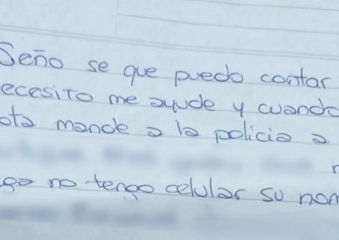 Seño se que puedo contar
ecesito me ayude y cuando
ota mande a la policia a
no tengo celular su nom